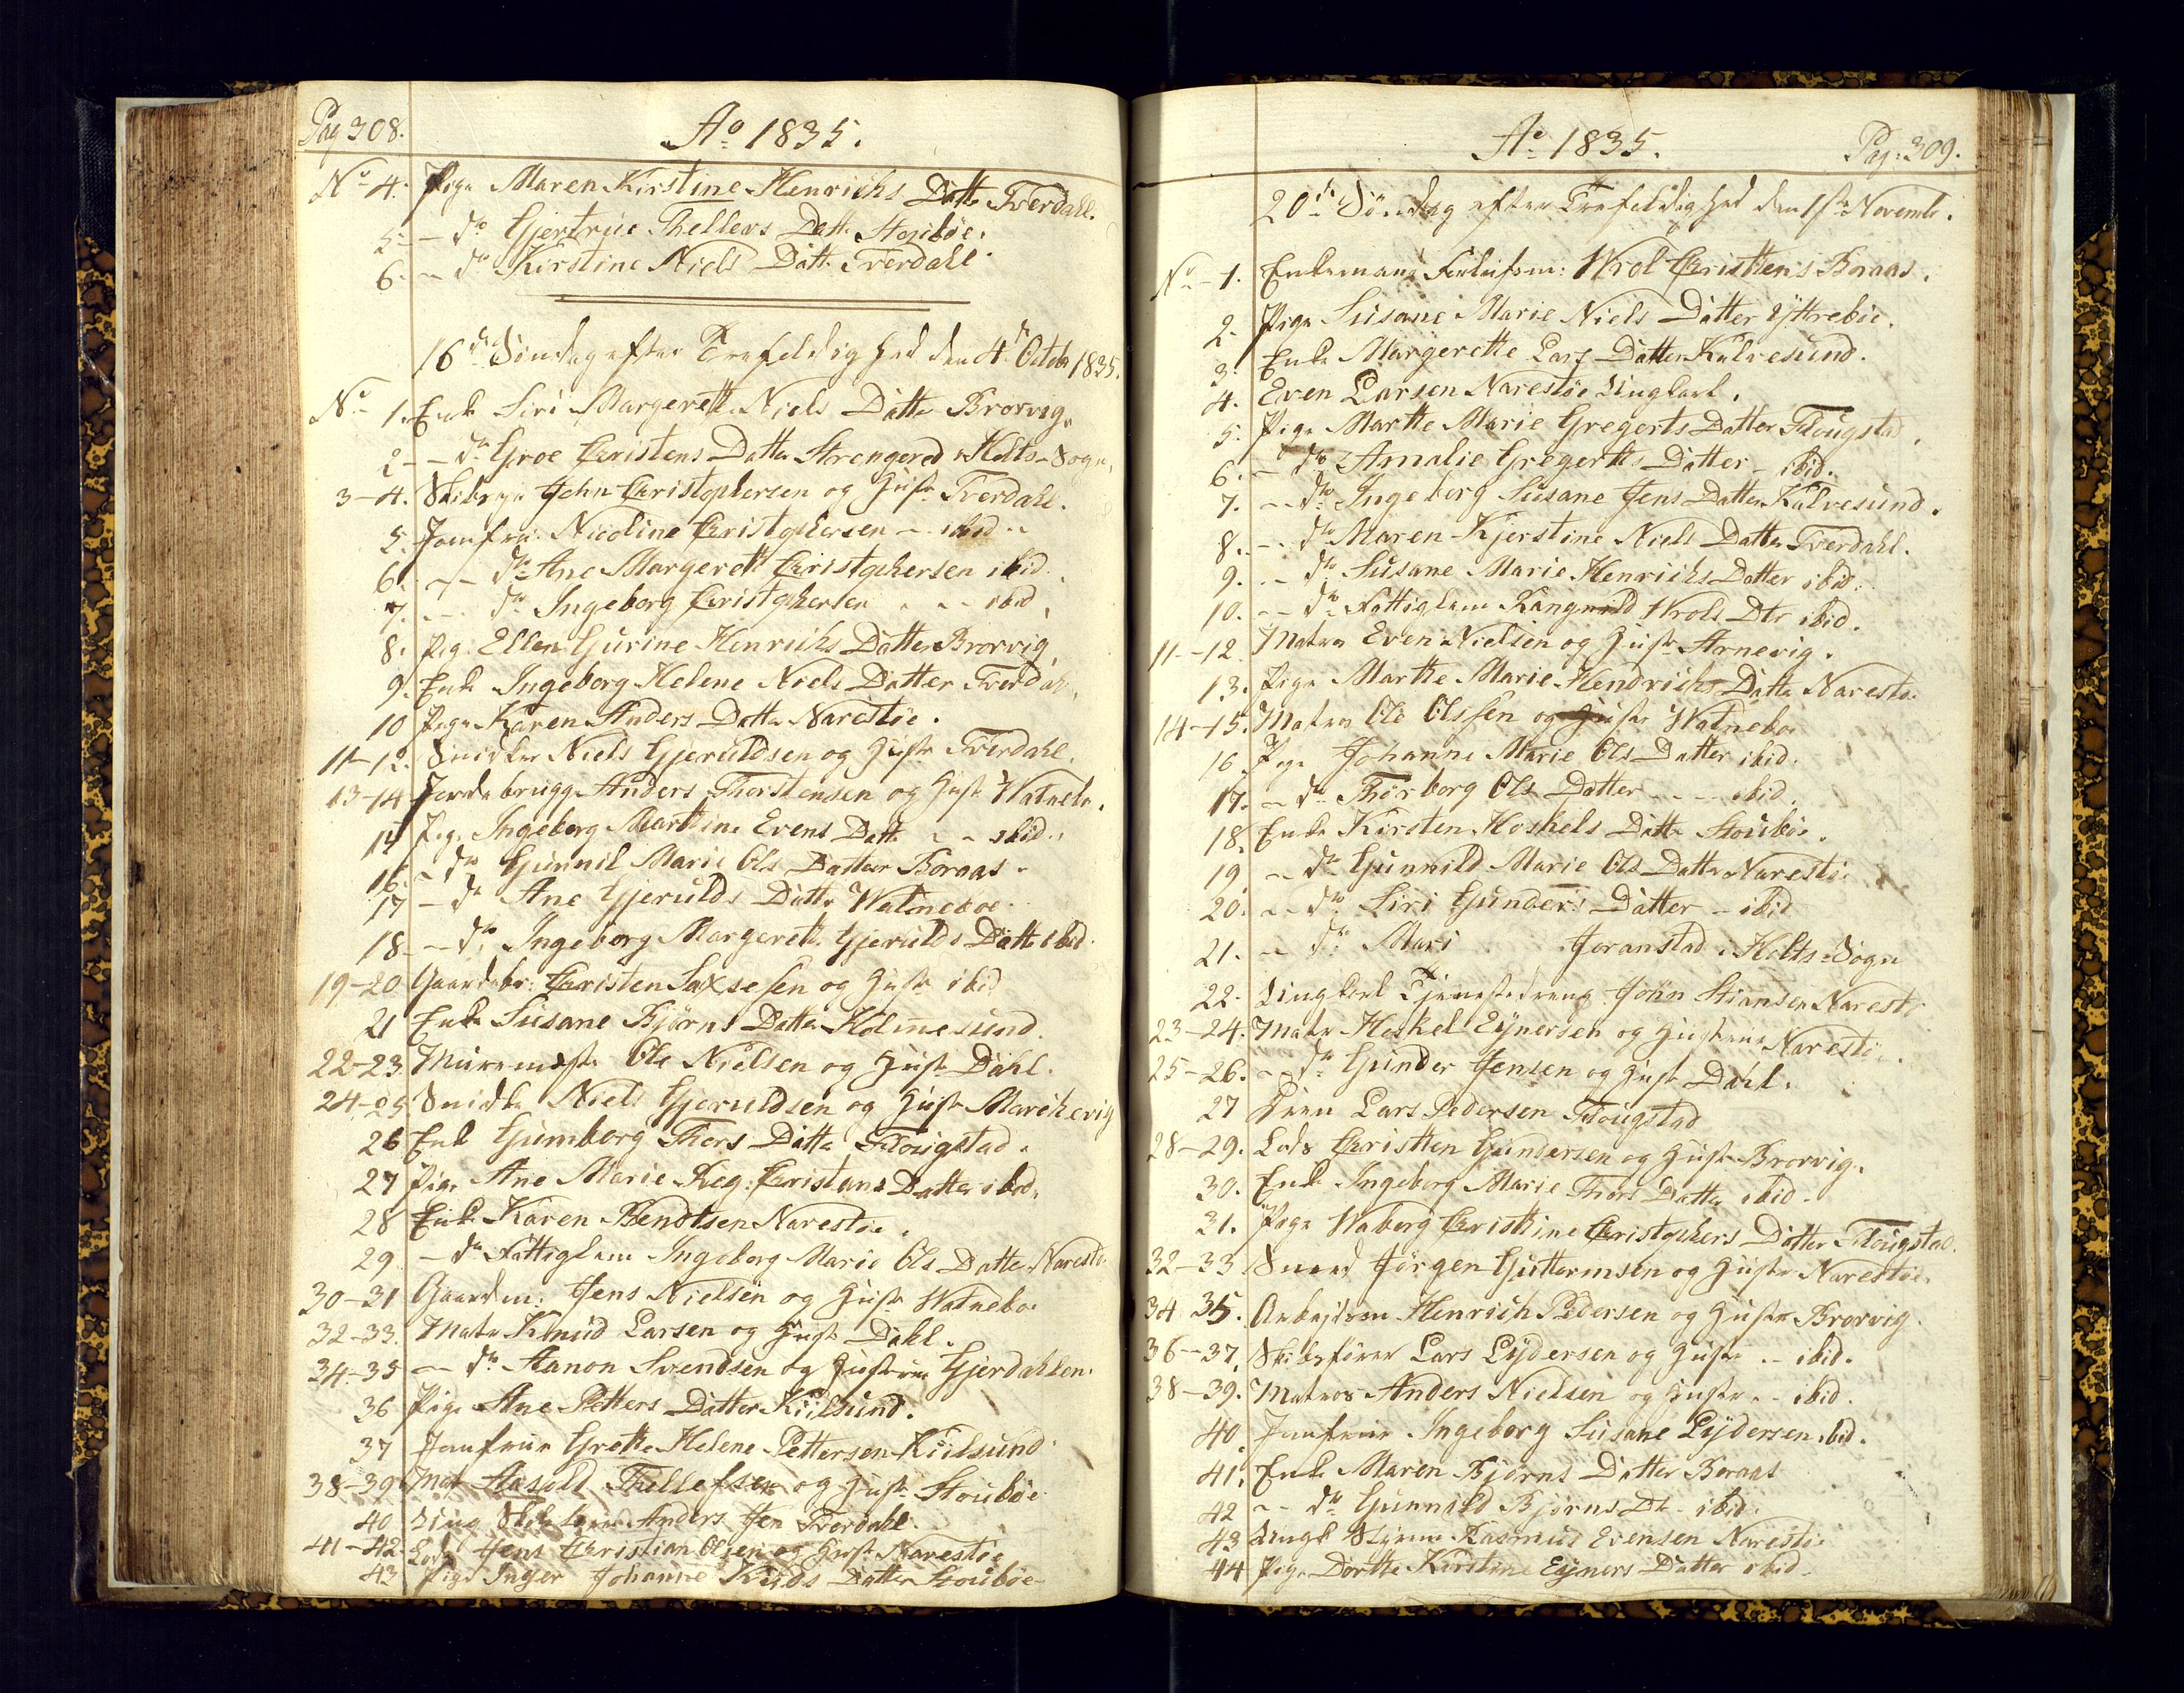 Pag 308.
Ao 1835.
No 4. Pige Maren Kirstine Henrichs Datte Tverdahl.
5 - do Gjertrue Thellevs Datt. Stoubøe.
6. - do Kirstine Niels Datt. Tverdahl.
16de Søndag efter Trefoldighed den 4de Octobr 1835.
No 1. Enk Siri Margerett Niels Datte Brorvig.
2 - do Groe Christens Datter Strengered Holts-Sogn,
3-4. Skibs John Christophersen og Hustr Tverdahl.
5. Jomfru Nicoline Christophersen - ibid.
6. - do Ane Margerett Christophersen ibid.
7. - do Ingeborg Christophersen - - ibid.
8. Pig. Ellen Gurine Henrichs Datter Brorvig,
9. Enk Ingeborg Helene Niels Datter Tverdahl,
10 Pige Karen Anders Datte Narestøe.
11-12. Snidker Niels Gjeruldsen og Hustr Tverdahl.
13-14 Jordebrugge Anders Thorstensen og Hust Watneb.
14 Pig. Ingeborg Marthine Evens Datt. - - ibid.
16. - do Gunnil Marie Ols Datter Boraas.
17 - do Ane Gjerulds Datte Watnebøe.
18 - do Ingeborg Margerett. Gjerulds Datte ibid.
19-20 Gaardebr: Christen Saxsesen og Hustr ibid
21 Enke Susane Bjørns Datter Holmesund.
22-23. Muremest Ole Nielsen og Hustr Dahl.
24-25 Snidke Niels Gjeruldsen og Hustr Marchevig
26 Enk Gumborg Thors Datte Flougstad.
27 Pige Ane Marie Reg. Christans Datter ibid.
28 Enk Karen Bendtsen Narestøe.
29 - do Fattiglem Ingeborg Marie Ols Datter Narestø
30-31 Gaardm: Jens Nielsen og Hustr Watneboe
32-33. Matr Knud Larsen og Hust Dahl.
34-35 - do Aanon Svendsen og Hustrue Gjerdahlen.
36 Pige Ane Petters Datter Kiilsund.
37 Jomfrue Grethe Helene Pettersen Kiilsund
38-39 Mat Aasold Thellefsen og Hust. Stoubøe
40 Ung Anders Jen Tverdahl.
41-42. Lods Jens Christian Olsen og Hustr Narestøe
43 Pige Inger Johanne Knds Datter Stoubøe
Ao 1835.
Pag: 309.
20de Søndag efter Trefoldighed den 1ste Novembr.
No 1. Enkemand Wrol Christens Boraas.
2. Pige Susane Marie Niels Datter Yttrebøe.
3. Enke Margerette Lars Datter Kalvesund.
4. Even Larsen Narestøe Ungkarl.
5. Pige Marthe Marie Gregerts Datter Flougstad.
6. - do Amalie Gregerts Datter - ibid.
7. - do Ingeborg Susane Jens Datter Kalvesund.
8. - do Maren Kjerstine Niels Datter Tverdahl.
9. - do Susane Marie Henrichs Datter ibid.
10. - do Fattiglem Rangnild Wrols Dtr ibid.
11-12. Matros Even Nielsen og Hustr Arnevig.
13. Pige Marthe Marie Hendrichs Datte Narestøe
14-15. Matros Ole Olssen og Hustr Watneboe
16. Pige Johanne Marie Ols Datter ibid.
17. - do Thorborg Ols Datter - - - ibid.
18. Enke Kirsten Hoskels Datte Stoubøe.
19 - do Gunnild Marie Ols Datte Narestøe
20. - do Siri Gunders Datter - ibid
21. - do Mari Joranstad i Holts-Sogn
22. Ungkarl Tjenestedreng John Stiansen Narestø
23-24. Matr Hoskel Eynersen og Hustrue Narestøe.
25-26. - do Gunder Jensen og Hustr Dahl.
27 Lars Pedersen Flougstad
28-29. Lods Christen Gundersen og Hustr Brorvig.
30. Enke Ingeborg Marie Thors Datte ibid.
31. Pige Waborg Christine Christophers Datter Flougstad.
32-33 Smed Jørgen Guttormsen og Hustr Narestøe.
34 35. Arbejdsm Henrich Pedersen og Hustr Brorvig.
36-37. Skibsfører Lars Lydersen og Hustr - ibid.
38-39. Matros Anders Nielsen og Hustr - - ibid.
40. Jomfrue Ingeborg Susane Lydersen ibid.
41. Enke Maren Bjørns Datter Boraas
42 - do Gunnild Bjørns Dt - ibid.
43 Ungk Styrm Rasmus Evensen Narestøe
44 Pige Dorthe Kirstine Eyners Datter ibid.